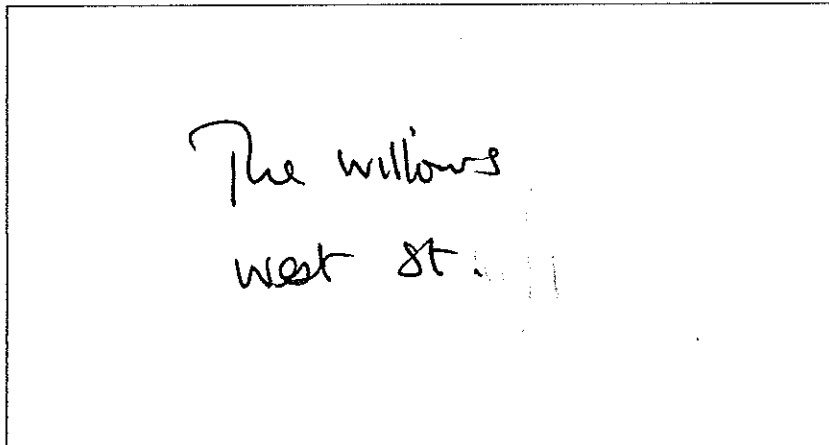 The Willows
West St.